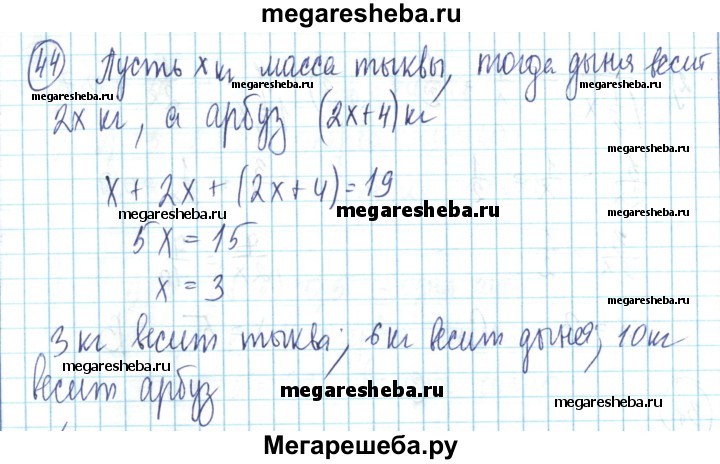 megaresheba.ru
44 Пусть x кг масса тыквы, тогда дыня весит
megaresheba.ru megaresheba.ru megaresheba.ru
2x кг, а арбуз (2x+4) кг
x + 2x + (2x+4) = 19
megaresheba.ru megaresheba.ru
5x = 15
x = 3
megaresheba.ru
3 кг весит тыква; 6 кг весит дыня; 10 кг
megaresheba.ru megaresheba.ru
весит арбуз
megaresheba.ru megaresheba.ru
Мегарешеба.ру